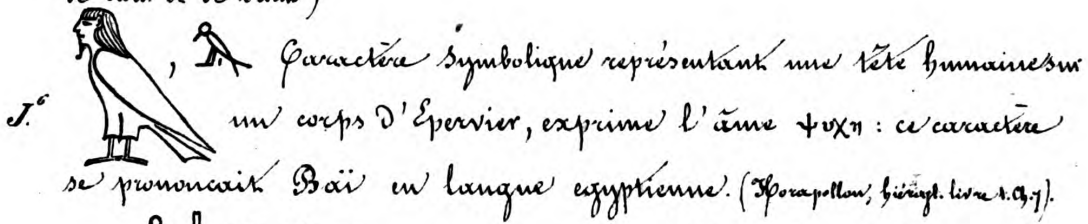 , Caractère Symbolique représentant une tête humaine sur
J.⁶ un corps d'Épervier, exprime l'âme ψυχη : ce caractère
se prononcait Baï en langue egyptienne. (Horapollon, hiérogl. livre 1. Ch. 7).